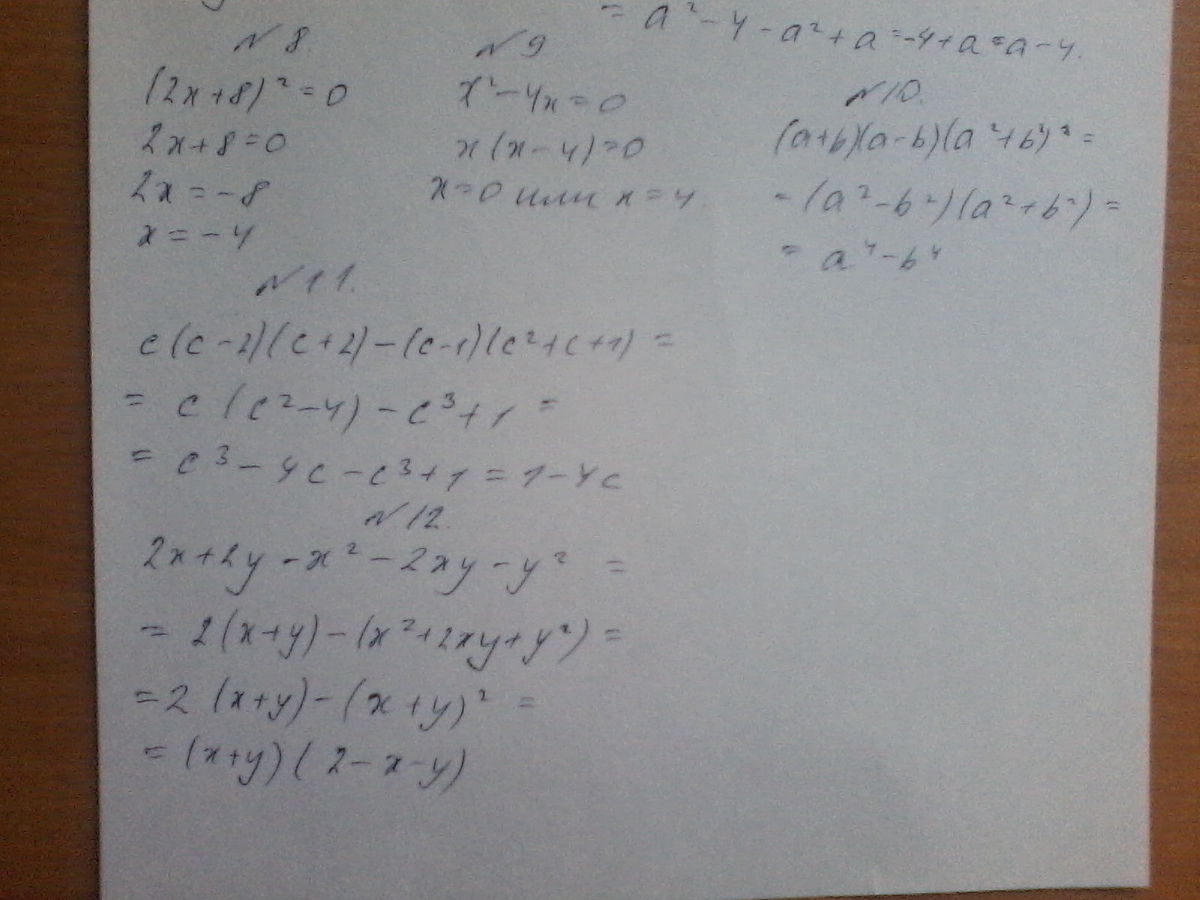 = a² - 4 - a² + a = -4 + a = a - 4.
№8.
(2x+8)² = 0
2x+8=0
2x = -8
x = -4
№9
x² - 4x = 0
x(x-4)=0
x=0 или x=4.
№10.
(a+b)(a-b)(a²+b²) =
= (a²-b²)(a²+b²) =
= a⁴-b⁴
№11.
c(c-2)(c+2)-(c-1)(c²+c+1) =
= c(c²-4)-c³+1 =
= c³-4c-c³+1=1-4c
№12.
2x+2y-x²-2xy-y² =
= 2(x+y)-(x²+2xy+y²) =
=2(x+y)-(x+y)² =
= (x+y)(2-x-y)